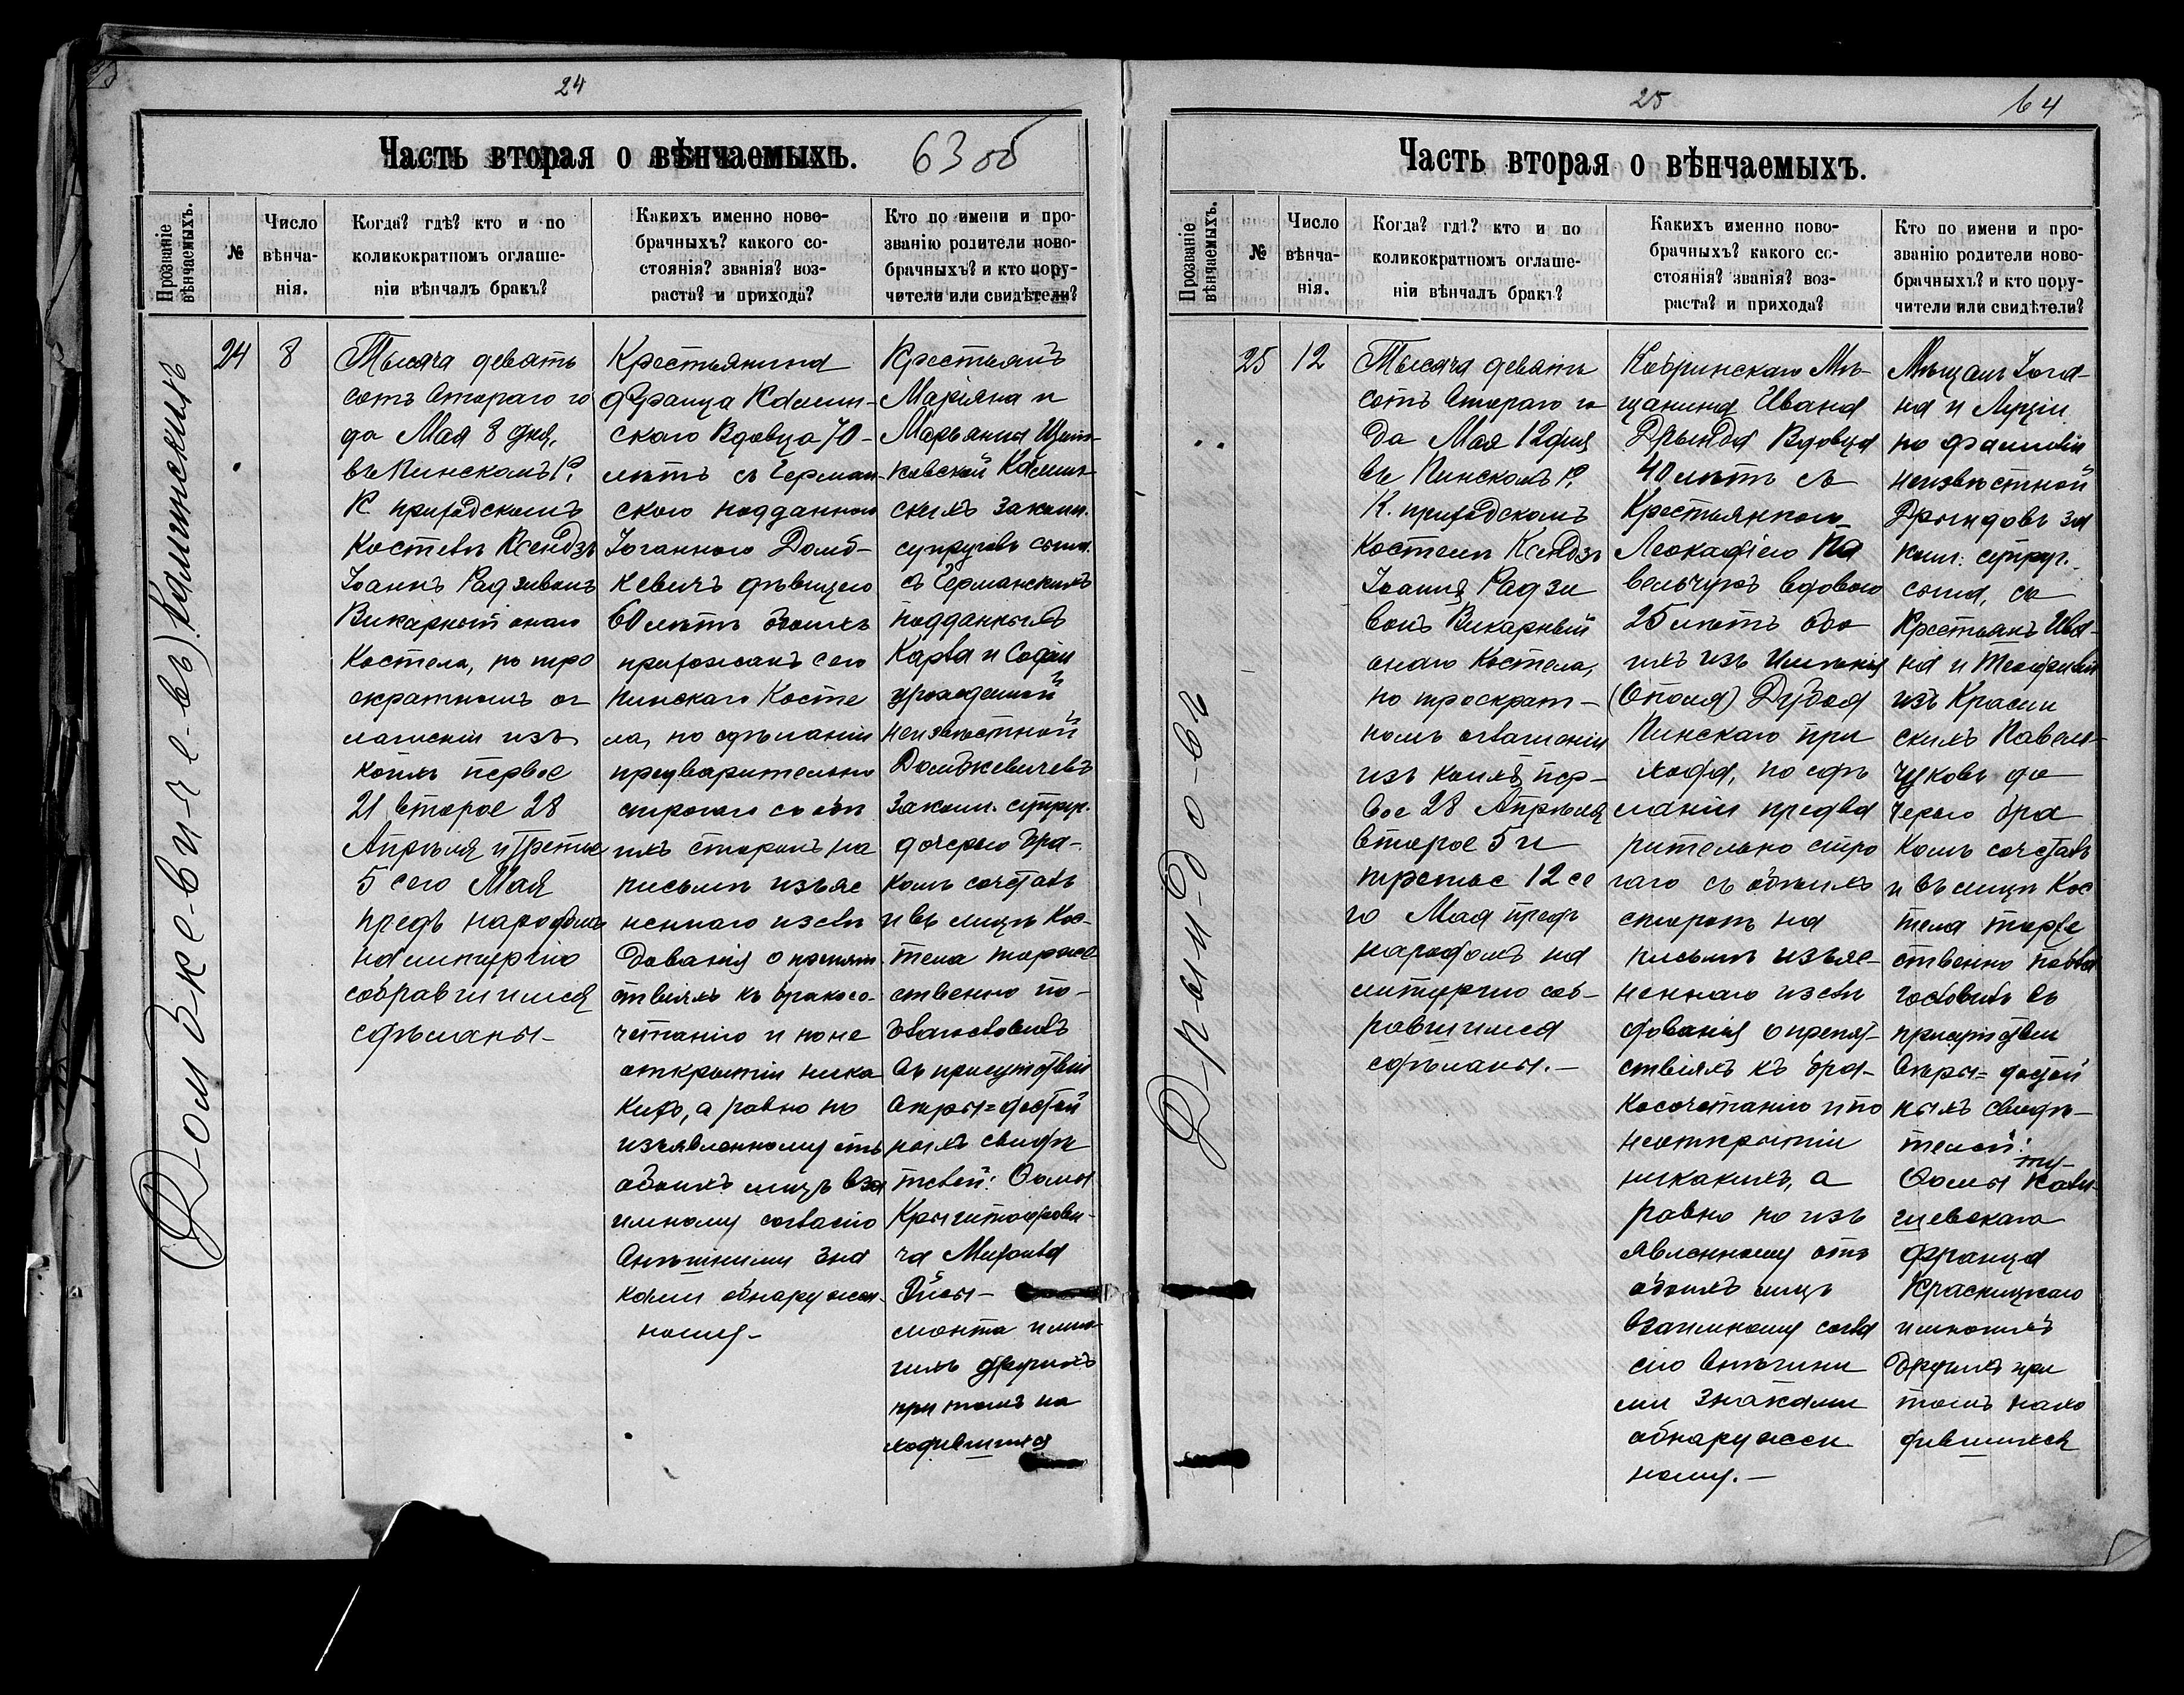 24
Часть вторая о вѣнчаемыхъ. 63 об
Прозваніе вѣнчаемыхъ.
№
Число
вѣнча-
нія.
Когда? гдѣ? кто и по
коликократномъ оглаше-
ніи вѣнчалъ бракъ?
Какихъ именно ново-
брачныхъ? какого со-
стоянія? званія? воз-
раста? и прихода?
Кто по имени и про-
званію родители ново-
брачныхъ? и кто пору-
чители или свидѣтели?
24
8
Тысяча девять
сотъ второго го
да Мая 8 дня,
въ Пинскомъ Р.
К приходскомъ
Костелѣ Ксендзъ
Іоаннъ Радзивонъ
Викарный онаго
Костела, по тро
екратномъ ог
лашеніи изъ
коихъ первое
21 второе 28
Апрѣля и третье
5 сего Мая
предъ народомъ
на литургію
собравшимися
сдѣланы-
Крестьянина
Франца Камин-
скаго Вдовца 70-
лѣтъ съ Герман-
скою подданною
Іоганною Домб-
кевичъ дѣвицею
60 лѣтъ обоихъ
прихожанъ сего
Пинскаго Косте
ла, по сдѣланіи
предварительно
строгаго съ обѣ
ихъ сторонъ на
письмѣ изъяс
неннаго изслѣ
дованія о препят
ствіяхъ къ бракосо-
четанію и по не
открытіи ника
кихъ, а равно по
изъявленному отъ
обоихъ лицъ вза
имному согласію
внѣшними зна
ками обнаружен-
ному-
Крестьянъ
Маріяна и
Марьянны
Камин-
скихъ законн.
супруговъ сына.
съ Германскихъ
подданныхъ
Карла и Софіи
урожденной
неизвѣстной
Домбкевичевъ
законн. супруг.
дочерью бра-
комъ сочеталъ
и въ лицѣ Кос-
тела торже
ственно по-
благословилъ
въ присутствіи
вѣры=достой
ныхъ свидѣ
телей: Ѳомы
Криштофови-
ча Михаила
Дисы-
монта и мно-
гихъ другихъ
при томъ на
ходившихся
Домбкевичевъ) Каминскихъ
25
64
Часть вторая о вѣнчаемыхъ.
Прозваніе вѣнчаемыхъ.
№
Число
вѣнча-
нія.
Когда? гдѣ? кто и по
коликократномъ оглаше-
ніи вѣнчалъ бракъ?
Какихъ именно ново-
брачныхъ? какого со-
стоянія? званія? воз-
раста? и прихода?
Кто по имени и про-
званію родители ново-
брачныхъ? и кто пору-
чители или свидѣтели?
25
12
Тысяча девять
сотъ второго го
да Мая 12 дня
въ Пинскомъ Р.
К. приходскомъ
Костелѣ Ксендзъ
Іоаннъ Радзи
вонъ Викарный
онаго Костела,
по троекрат-
номъ оглашеніи
изъ коихъ пер-
вое 28 Апрѣля
второе 5 и
третье 12 се
го Мая предъ
народомъ на
литургію соб-
равшимися
сдѣланы.-
Кобринскаго Мѣ-
щанина Ивана
Дрында Вдовца
40 лѣтъ съ
Крестьянкою
Леокадіею Па
вельчукъ вдовою
25 лѣтъ обо
ихъ изъ Имѣнія
(Ополя) Дубоя
Пинскаго при
хода, по сдѣ
ланіи предва
рительно стро
гаго съ обѣихъ
сторонъ на
письмѣ изъяс-
неннаго изслѣ
дованія о препят-
ствіяхъ къ бра-
косочетанію и по
неоткрытіи
никакихъ, а
равно по изъ
явленному отъ
обоихъ лицъ
взаимному согла
сію внѣшни
ми знаками
обнаружен
ному.-
Мѣщанъ Іоан-
на и Луціи
по фамиліи
неизвѣстной
Дрындовъ за
конн: супруг.
сына, съ
Крестьянъ Ива-
на и Теофиліи
изъ Красин
скихъ Павель-
чуковъ до
черью бра
комъ сочеталъ
и въ лицѣ Кос
тела торже
ственно побла
гословилъ въ
присутствіи
вѣры=достой
ныхъ свидѣ-
телей:
Ѳомы
шевскаго
Франца
Красницкаго
и многихъ
другихъ при
томъ нахо
дившихся
Дрындовъ